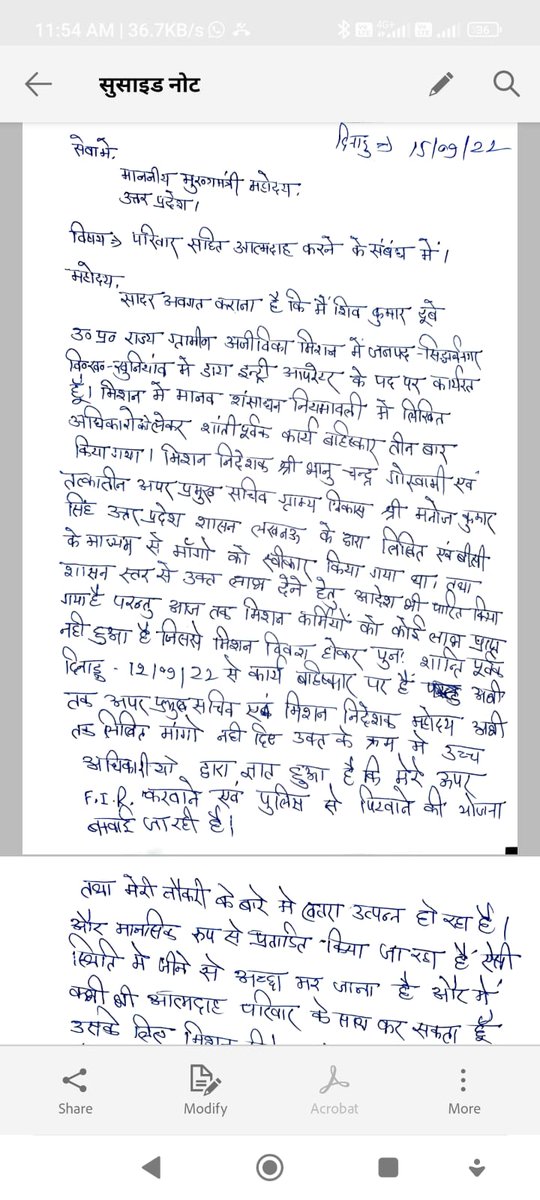 11:54 AM | 36.7KB/s
4G+
36
सुसाइड नोट
दिनाङ्क ⇒ 15/09/22
सेवामे,
माननीय मुख्यमंत्री महोदय,
उत्तर प्रदेश।
विषय ⇒ परिवार सहित आत्मदाह करने के संबंध में।
महोदय,
सादर अवगत कराना है कि मैं शिव कुमार दूबे
उ० प्र० राज्य ग्रामीन अजीविका मिशन में जनपद - सिद्धार्थनगर
विकास-खुनियांव में डाटा इन्ट्री आपरेटर के पद पर कार्यरत
हूँ। मिशन मे मानव शंसाधन नियमावली में लिखित
अधिकारो को लेकर शांतीपूर्वक कार्य बहिष्कार तीन बार
किया गया। मिशन निदेशक श्री भानु चन्द्र गोस्वामी एवं
तत्कालीन अपर प्रमुख सचिव ग्राम्य विकास श्री मनोज कुमार
सिंह उत्तर प्रदेश शासन लखनऊ के द्वारा लिखित एवं वीसी
के माध्यम से माँगो को स्वीकार किया गया था। तथा
शासन स्तर से उक्त लाभ देने हेतु आदेश भी पारित किया
गया है परन्तु आज तक मिशन कर्मियों को कोई लाभ प्राप्त
नही हुआ है जिससे मिशन विवश होकर पुनः शान्ति पूर्वक
दिनाङ्क - 12/09/22 से कार्य बहिष्कार पर है अभी
तक अपर प्रमुख सचिव एवं मिशन निदेशक महोदय अभी
तक लिखित मांगो नही दिए उक्त के क्रम मे उच्च
अधिकारीयो द्वारा ज्ञात हुआ है कि मेरे ऊपर
F.I.R. करवाने एवं पुलिस से पिटवाने की योजना
बनाई जा रही है।
तथा मेरी नौकरी के बारे मे खतरा उत्पन्न हो रहा है।
और मानसिक रूप से प्रताडित किया जा रहा है ऐसी
स्थिति मे जीने से अच्छा मर जाना है और में
कभी भी आत्मदाह परिवार के साथ कर सकता हूँ
उसके लिए मिशन
Share
Modify
Acrobat
More